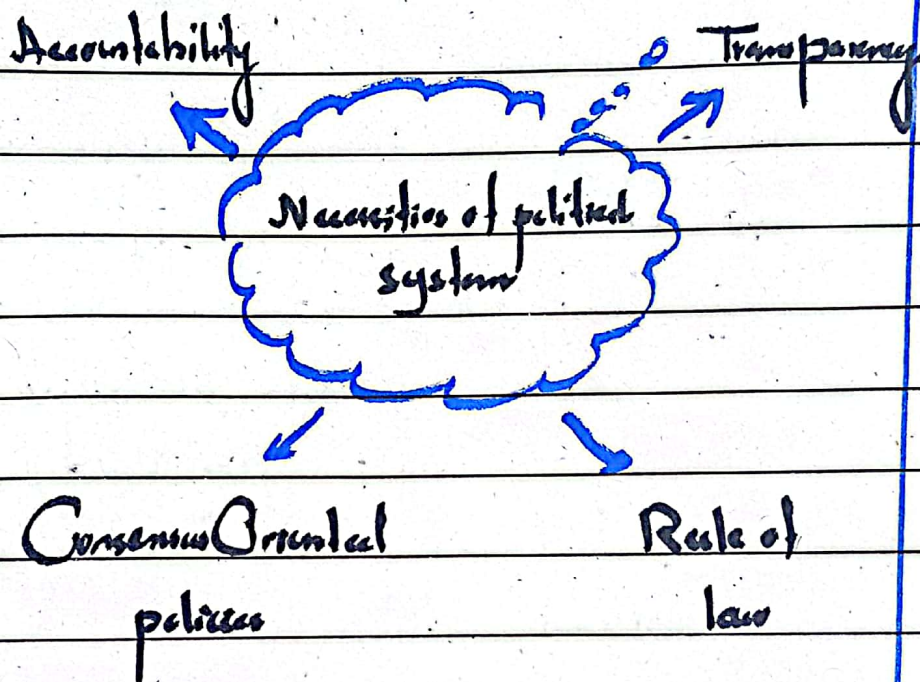 Accountability
Transparency
Necessities of political
system
Consensus Oriented
policies
Rule of
law